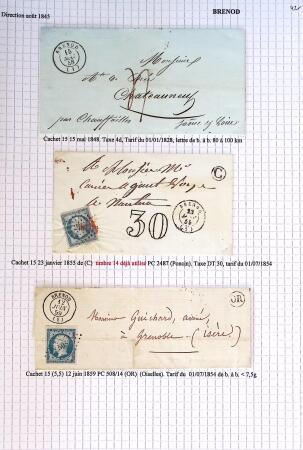 42€
Direction août 1845
BRENOD
BRENOD
15
48
(1)
Monsieur
Chateauneuf
par Chauffailles
Saône et Loire
Cachet 15 15 mai 1848. Taxe 4d, Tarif du 01/01/1828, lettre de b. à b. 80 à 100 km
C
A Monsieur
à Nantua
30
BRENOD
23
55
(1)
Cachet 15 23 janvier 1855 de (C) timbre 14 déjà utilisé PC 2487 (Poncin), Taxe DT 30, tarif du 01/07/1854
BRENOD
12
JUIN
59
(1)
OR
Monsieur Guichard, ainé,
à Grenoble (isère)
Cachet 15 (5,5) 12 juin 1859 PC 508/14 (OR) (Oiselles). Tarif du 01/07/1854 de b. à b. < 7,5g